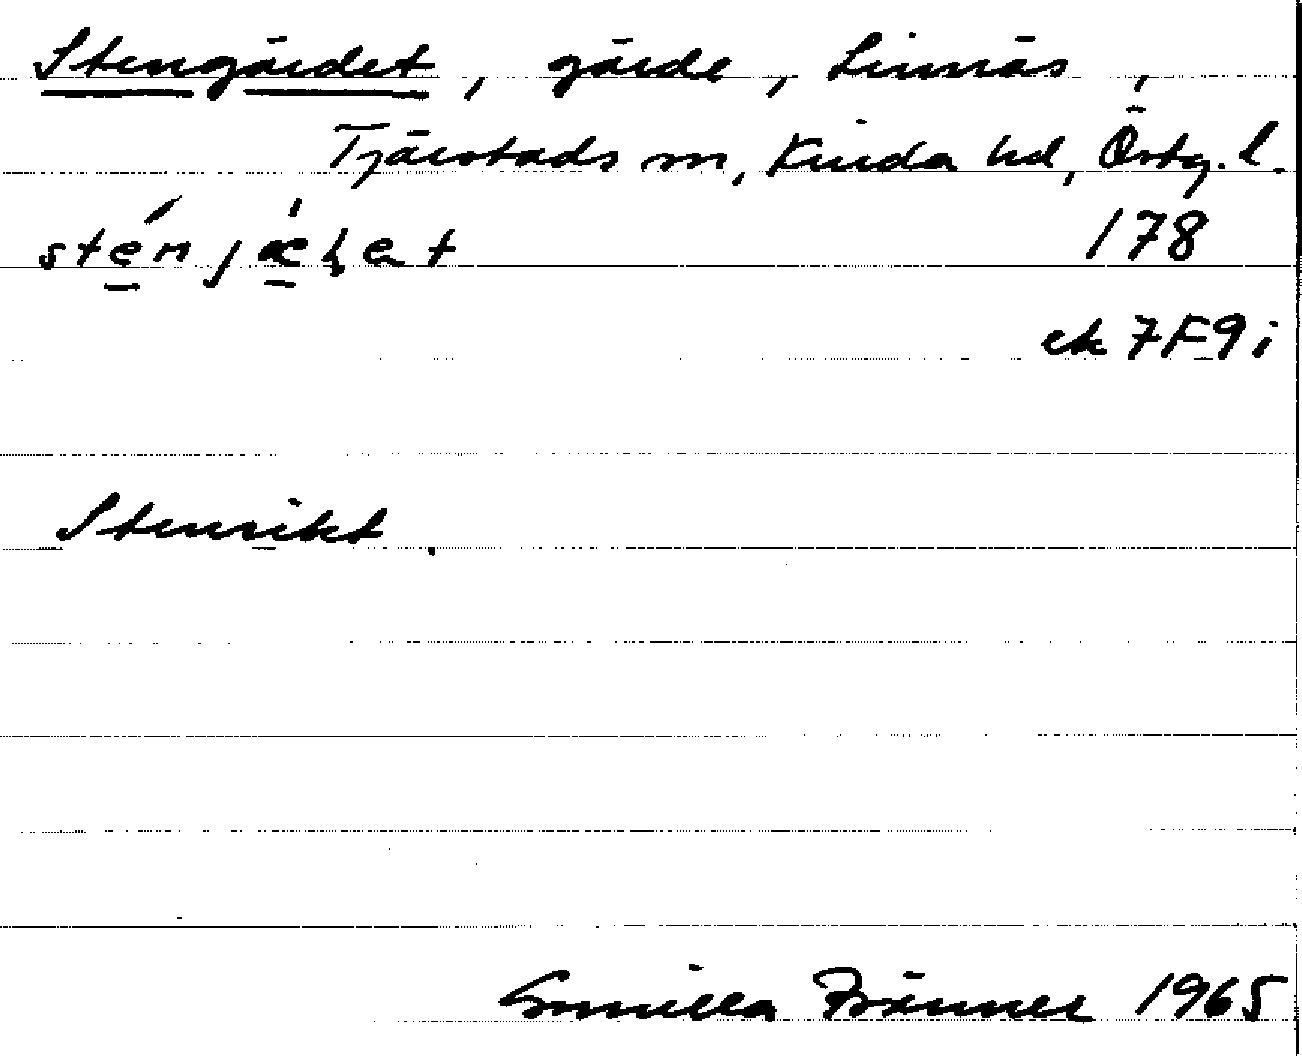 Stengärdet, gärde, Linnäs,
Tjärstads sn, Kinda hd, Östg. l.
sténjæ̀ḍet 178
ek 7F9i
Stenrikt.
Gunilla Fränne 1965